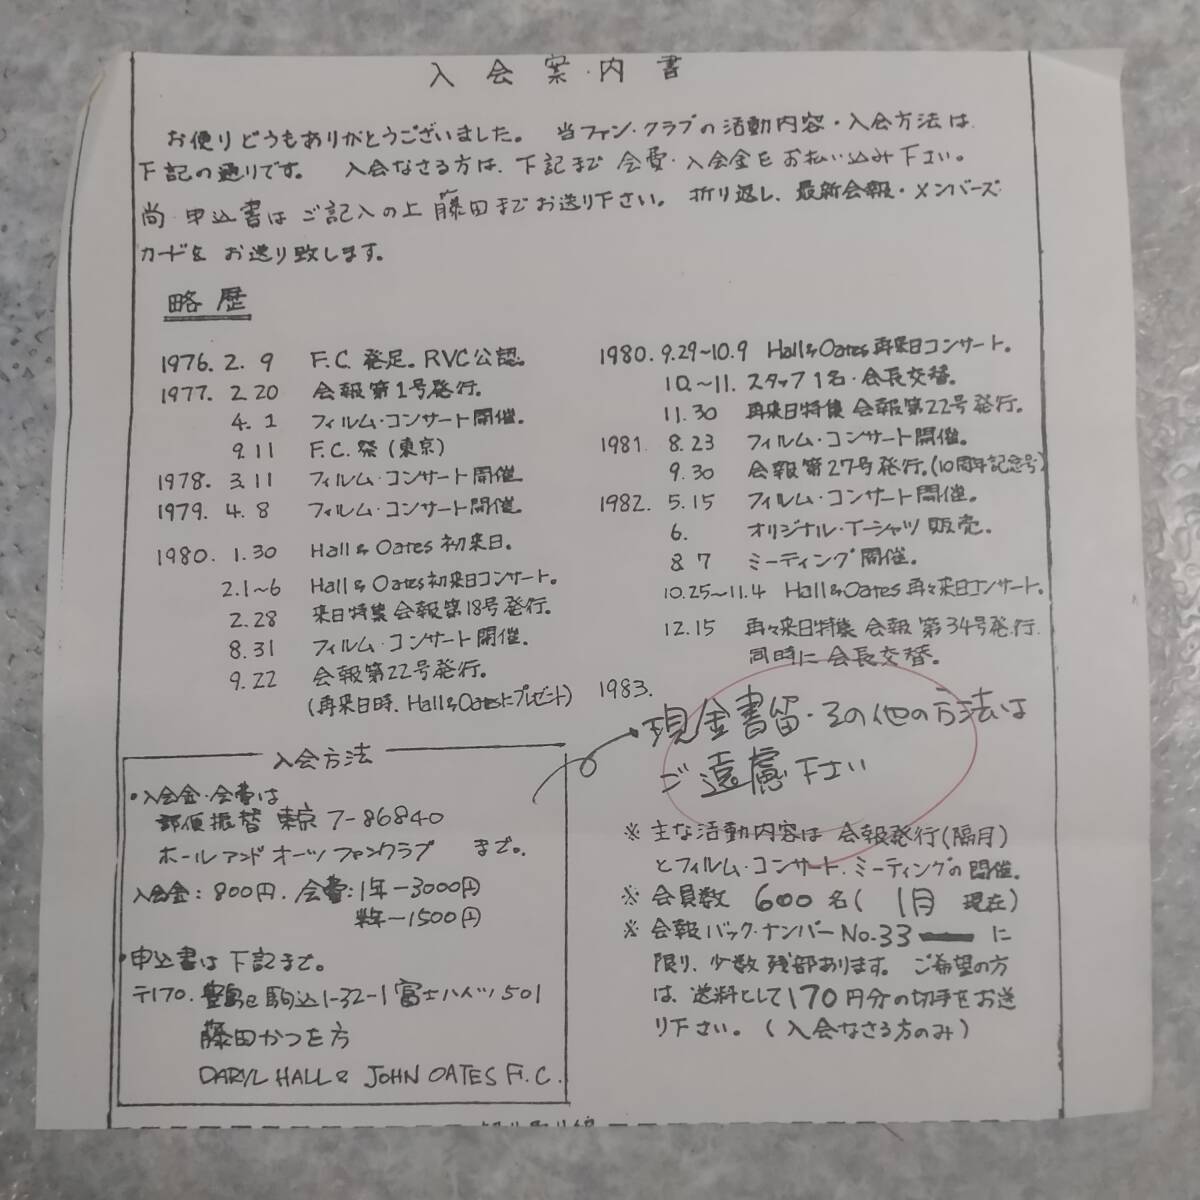 入会案・内書
お便りどうもありがとうございました。 当ファン・クラブの活動内容・入会方法は、
下記の通りです。 入会なさる方は、下記まで会費・入会金をお払い込み下さい。
尚、申込書はご記入の上藤田までお送り下さい。折り返し、最新会報・メンバーズ
カードをお送り致します。
略歴
1976. 2. 9 F.C. 発足。RVC公認。
1977. 2.20 会報第1号発行。
4. 1 フィルム・コンサート開催。
9.11 F.C.祭(東京)
1978. 3.11 フィルム・コンサート開催
1979. 4. 8 フィルム・コンサート開催。
1980. 1.30 Hall & Oates 初来日。
2.1~6 Hall & Oates初来日コンサート。
2.28 来日特集会報第18号発行。
8.31 フィルム・コンサート開催。
9.22 会報第22号発行。
(再来日時、Hall & Oatesにプレゼント)
1980. 9.29~10.9 Hall & Oates再来日コンサート。
10.~11. スタッフ1名・会長交替。
11.30 再来日特集 会報第22号発行。
1981. 8.23 フィルム・コンサート開催。
9.30 会報第27号発行。(10周年記念号)
1982. 5.15 フィルム・コンサート開催。
6. オリジナル・T-シャツ販売。
8.7 ミーティング開催。
10.25~11.4 Hall & Oates再々来日コンサート。
12.15 再々来日特集 会報第34号発行.
同時に会長交替。
1983.
現金書留・その他の方法は
ご遠慮下さい
入会方法
・入会金・会費は
郵便振替 東京7-86840
ホール アンド オーツ ファンクラブ まで。
入会金:800円. 会費:1年-3000円
半年-1500円
・申込書は下記まで。
〒170. 豊島区駒込1-32-1富士ハイツ501
藤田かつを方
DARYL HALL & JOHN OATES F.C.
※ 主な活動内容は 会報発行(隔月)
とフィルム・コンサート、ミーティングの開催。
※ 会員数 600名( 1月 現在)
※ 会報バック・ナンバーNo.33 に
限り、少数残部あります。 ご希望の方
は、送料として170円分の切手をお送
り下さい。(入会なさる方のみ)